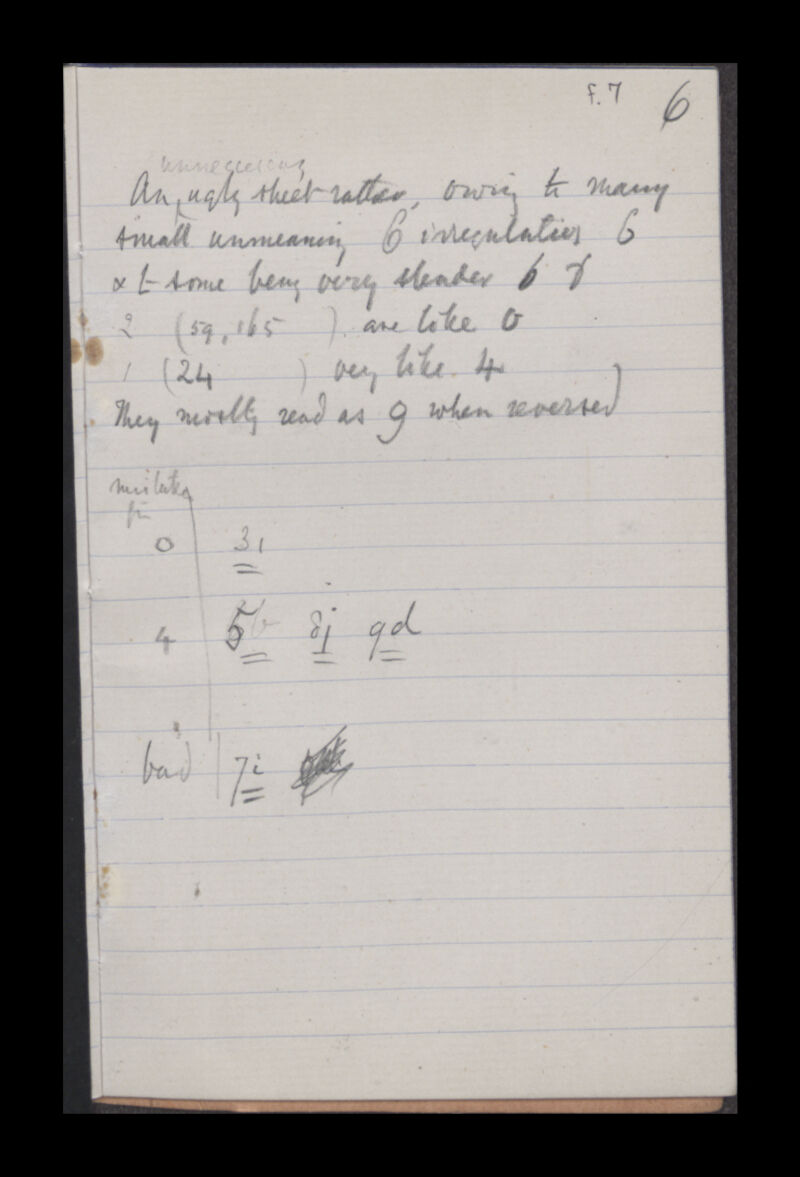 f.7 6
unnecessary
An, ugly sheet rather, owing to many
small unmeaning 6 irregularities 6
& to some being very slender 6 6
2 (59, 165 ) are like 0
1 (24 ) very like 4
They mostly read as 9 when reversed)
mistake
for
0 31
4 5b 8j 9d
bad 7i